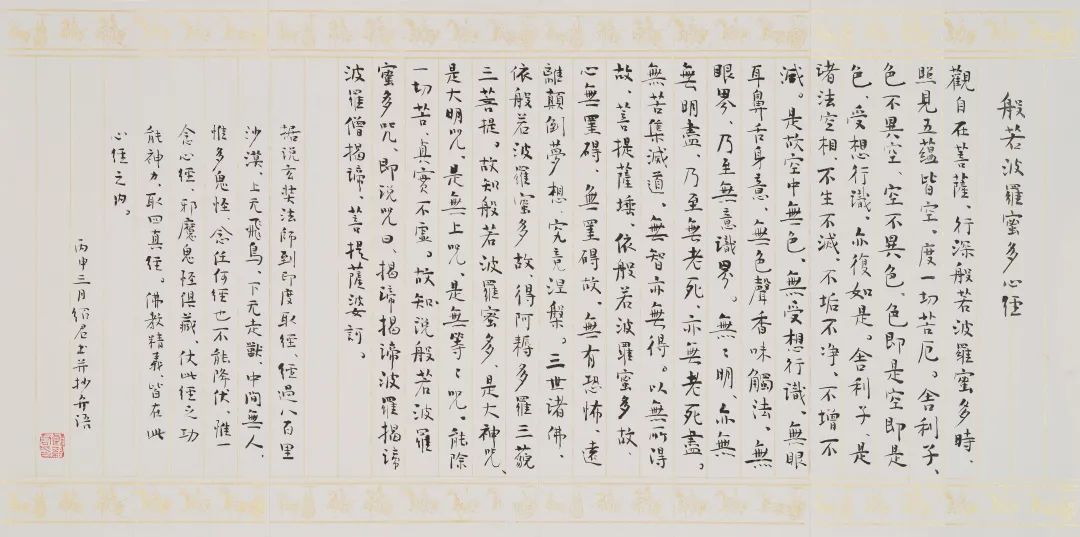 般若波羅蜜多心經
觀自在菩薩、行深般若波羅蜜多時、
照見五蘊皆空、度一切苦厄。舍利子、
色不異空、空不異色、色即是空即是
色、受想行識、亦復如是。舍利子、是
诸法空相、不生不滅、不垢不净、不增不
減。是故空中無色、無受想行識、無眼
耳鼻舌身意、無色聲香味觸法、無
眼界、乃至無意識界。無〻明、亦無
無明盡、乃至無老死、亦無老死盡。
無苦集滅道、無智亦無得。以無所得
故、菩提薩埵、依般若波羅蜜多故、
心無罣碍、無罣碍故、無有恐怖、遠
離顛倒夢想、究竟涅槃。三世诸佛、
依般若波羅蜜多故、得阿耨多羅三藐
三菩提。故知般若波羅蜜多、是大神咒、
是大明咒、是無上咒、是無等〻咒。能除
一切苦、真實不虛。故知说般若波羅
蜜多咒、即说咒曰、揭諦揭諦波羅揭諦
波羅僧揭諦、菩提薩婆訶。
据说玄奘法師到印度取經、經過八百里
沙漠、上元飛鳥、下元走獸、中間無人、
惟多鬼怪、念任何經也不能降伏、惟一
念心經、邪魔鬼怪俱藏、仗此經之功
能神力、取回真經。佛教精義、皆在此
心經之内。
丙申三月 并抄弁语